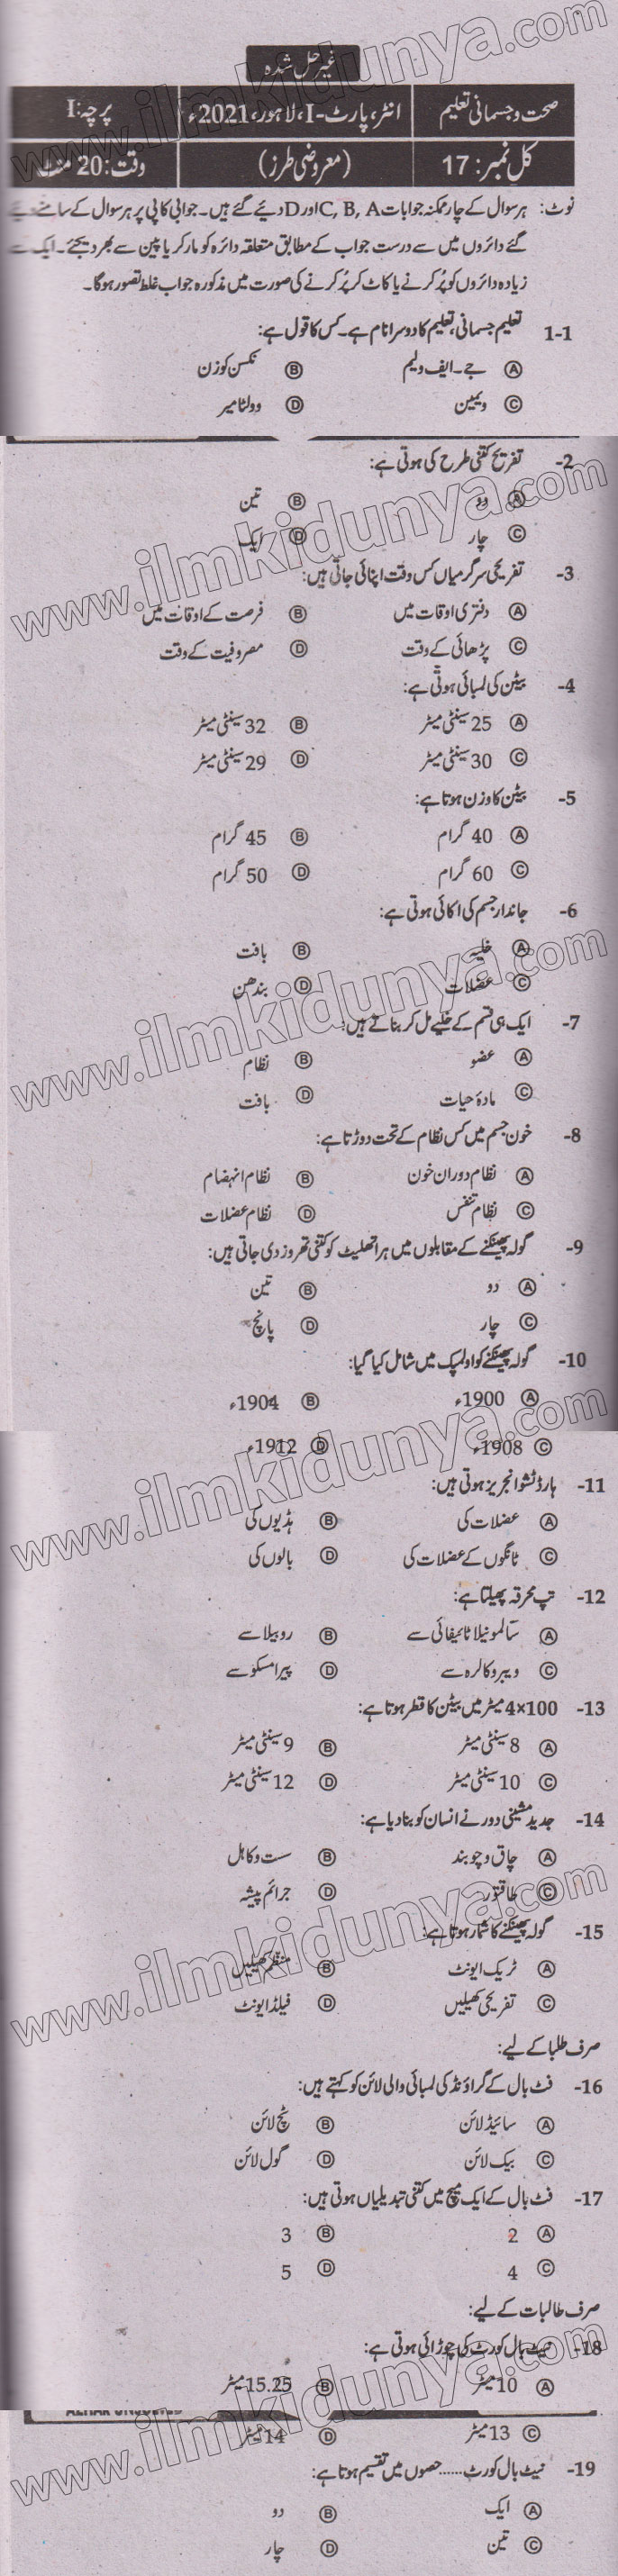 غیر حل شدہ
صحت و جسمانی تعلیم انٹر، پارٹ-I، لاہور، 2021ء پرچہ: I
کل نمبر: 17 (معروضی طرز) وقت: 20 منٹ
نوٹ: ہر سوال کے چار ممکنہ جوابات C, B, A اور D دیئے گئے ہیں۔ جوابی کاپی پر ہر سوال کے سامنے دیئے
گئے دائروں میں سے درست جواب کے مطابق متعلقہ دائرہ کو مارکر یا پین سے بھر دیجئے۔ ایک سے
زیادہ دائروں کو پُر کرنے یا کاٹ کر پُر کرنے کی صورت میں مذکورہ جواب غلط تصور ہوگا۔
1-1 تعلیم جسمانی، تعلیم کا دوسرا نام ہے۔ کس کا قول ہے:
Ⓐ جے۔ ایف ولیم Ⓑ نکسن کوزن
Ⓒ ویمین Ⓓ وولٹامیر
2- تفریح کتنی طرح کی ہوتی ہے:
Ⓐ دو Ⓑ تین
Ⓒ چار Ⓓ ایک
3- تفریحی سرگرمیاں کس وقت اپنائی جاتی ہیں:
Ⓐ دفتری اوقات میں Ⓑ فرصت کے اوقات میں
Ⓒ پڑھائی کے وقت Ⓓ مصروفیت کے وقت
4- بیٹن کی لمبائی ہوتی ہے:
Ⓐ 25 سینٹی میٹر Ⓑ 32 سینٹی میٹر
Ⓒ 30 سینٹی میٹر Ⓓ 29 سینٹی میٹر
5- بیٹن کا وزن ہوتا ہے:
Ⓐ 40 گرام Ⓑ 45 گرام
Ⓒ 60 گرام Ⓓ 50 گرام
6- جاندار جسم کی اکائی ہوتی ہے:
Ⓐ خلیہ Ⓑ بافت
Ⓒ عضلات Ⓓ بندھن
7- ایک ہی قسم کے خلیے مل کر بناتے ہیں:
Ⓐ عضو Ⓑ نظام
Ⓒ مادۂ حیات Ⓓ بافت
8- خون جسم میں کس نظام کے تحت دوڑتا ہے:
Ⓐ نظام دوران خون Ⓑ نظام انہضام
Ⓒ نظام تنفس Ⓓ نظام عضلات
9- گولہ پھینکنے کے مقابلوں میں ہر اتھلیٹ کو کتنی تھروز دی جاتی ہیں:
Ⓐ دو Ⓑ تین
Ⓒ چار Ⓓ پانچ
10- گولہ پھینکنے کو اولمپک میں شامل کیا گیا:
Ⓐ 1900ء Ⓑ 1904ء
Ⓒ 1908ء Ⓓ 1912ء
11- ہارڈ ٹشو انجریز ہوتی ہیں:
Ⓐ عضلات کی Ⓑ ہڈیوں کی
Ⓒ ٹانگوں کے عضلات کی Ⓓ بالوں کی
12- تپ محرقہ پھیلتا ہے:
Ⓐ سالمونیلا ٹائیفائی سے Ⓑ روبیلا سے
Ⓒ ویبروکالرہ سے Ⓓ پیرامسکو سے
13- 4×100 میٹر میں بیٹن کا قطر ہوتا ہے:
Ⓐ 8 سینٹی میٹر Ⓑ 9 سینٹی میٹر
Ⓒ 10 سینٹی میٹر Ⓓ 12 سینٹی میٹر
14- جدید مشینی دور نے انسان کو بنا دیا ہے:
Ⓐ چاق و چوبند Ⓑ سست و کاہل
Ⓒ طاقتور Ⓓ جرائم پیشہ
15- گولہ پھینکنے کا شمار ہوتا ہے:
Ⓐ ٹریک ایونٹ Ⓑ منظم کھیلیں
Ⓒ تفریحی کھیلیں Ⓓ فیلڈ ایونٹ
صرف طلبا کے لیے:
16- فٹ بال کے گراؤنڈ کی لمبائی والی لائن کو کہتے ہیں:
Ⓐ سائیڈ لائن Ⓑ ٹچ لائن
Ⓒ بیک لائن Ⓓ گول لائن
17- فٹ بال کے ایک میچ میں کتنی تبدیلیاں ہوتی ہیں:
Ⓐ 2 Ⓑ 3
Ⓒ 4 Ⓓ 5
صرف طالبات کے لیے:
18- نیٹ بال کورٹ کی چوڑائی ہوتی ہے:
Ⓐ 10 میٹر Ⓑ 15.25 میٹر
Ⓒ 13 میٹر Ⓓ 14 میٹر
19- نیٹ بال کورٹ...... حصوں میں تقسیم ہوتا ہے:
Ⓐ ایک Ⓑ دو
Ⓒ تین Ⓓ چار
www.ilmkidunya.com
www.ilmkidunya.com
www.ilmkidunya.com
www.ilmkidunya.com
www.ilmkidunya.com
www.ilmkidunya.com